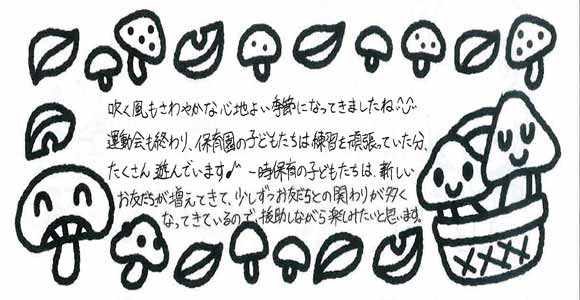 吹く風もさわやかな心地よい季節になってきましたね^^
運動会も終わり、保育園の子どもたちは練習を頑張っていた分、
たくさん遊んでいます♪ 一時保育の子どもたちは、新しい
お友だちが増えてきて、少しずつお友だちとの関わりが多く
なってきているので、援助しながら楽しみたいと思います。